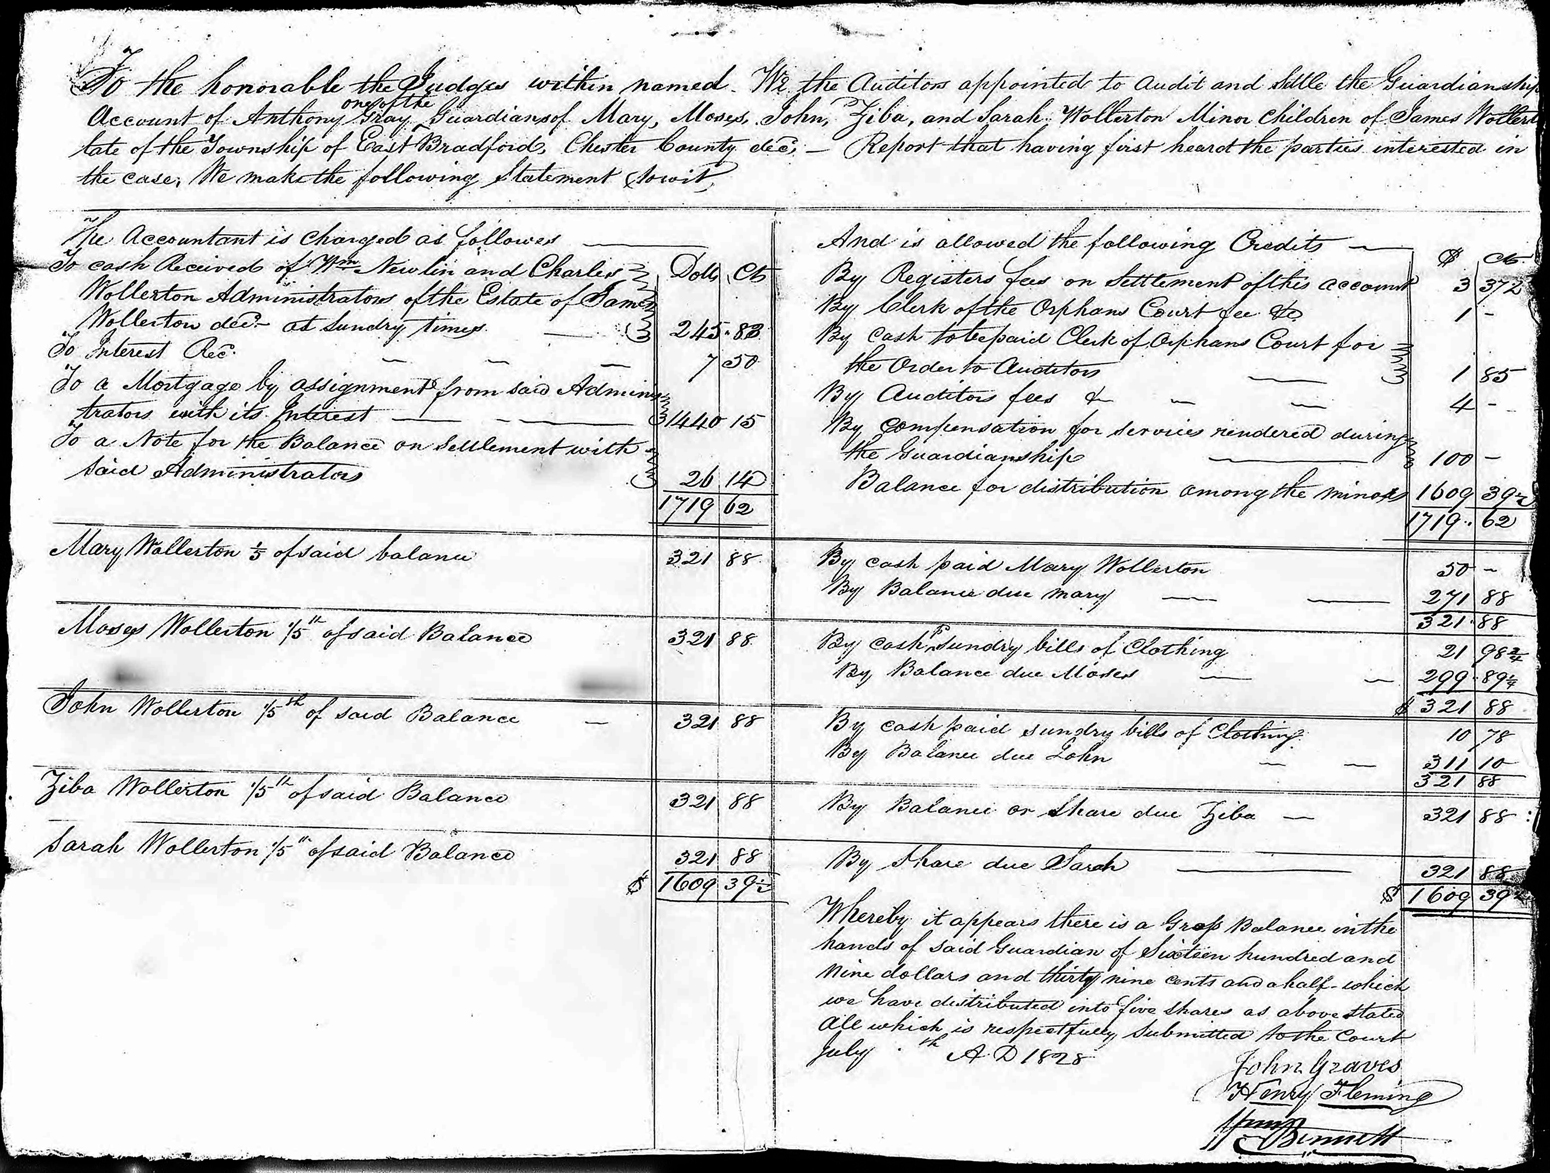 To the honorable the Judges within named. We the Auditors appointed to Audit and Settle the Guardianship
Account of Anthony Gray one of the Guardians of Mary, Moses, John, Ziba, and Sarah Wollerton Minor Children of James Wollerton
late of the Township of East Bradford, Chester County decd, — Report that having first heard the parties interested in
the case, We make the following Statement Towit,
The Accountant is Charged as follows
To cash Received of Wm Newlin and Charles
Wollerton Administrators of the Estate of James
Wollerton decd at Sundry times
To Interest Recd.
To a Mortgage by assignment from said Adminis
trators with its Interest
To a Note for the Balance on Settlement with
said Administrators
Dolls Cts
245.83
7 50
1440 15
26 14
1719 62
And is allowed the following Credits
By Registers fees on settlement of this account
By Clerk of the Orphans Court fee &c
By cash to be paid Clerk of Orphans Court for
the Order to Auditors
By Auditors fees &
By Compensation for services rendered during
the Guardianship
Balance for distribution among the minors
$ Cts
3 37½
1 -
1 85
4 - -
100 -
1609 39½
1719.. 62
Mary Wollerton ⅕ of said balance 321 88
By cash paid Mary Wollerton 50 -
By Balance due Mary 271 88
321.88
Moses Wollerton 1/5th of said Balance 321 88
By cash pd Sundry bills of Clothing 21 98¾
By Balance due Moses 299.89¼
$ 321 88
John Wollerton 1/5th of said Balance 321 88
By cash paid sundry bills of Clothing 10 78
By Balance due John 311 10
321 88
Ziba Wollerton 1/5th of said Balance 321 88
By Balance or Share due Ziba 321 88
Sarah Wollerton 1/5th of said Balance 321 88
$ 1609 39½
By Share due Sarah 321 88
$ 1609 39½
Whereby it appears there is a Gross Balance in the
hands of said Guardian of Sixteen hundred and
Nine dollars and thirty nine cents and a half which
we have distributed into five shares as above stated
All which is respectfully Submitted to the Court
July th A.D 1828
John Graves
Henry Fleming
Bennett